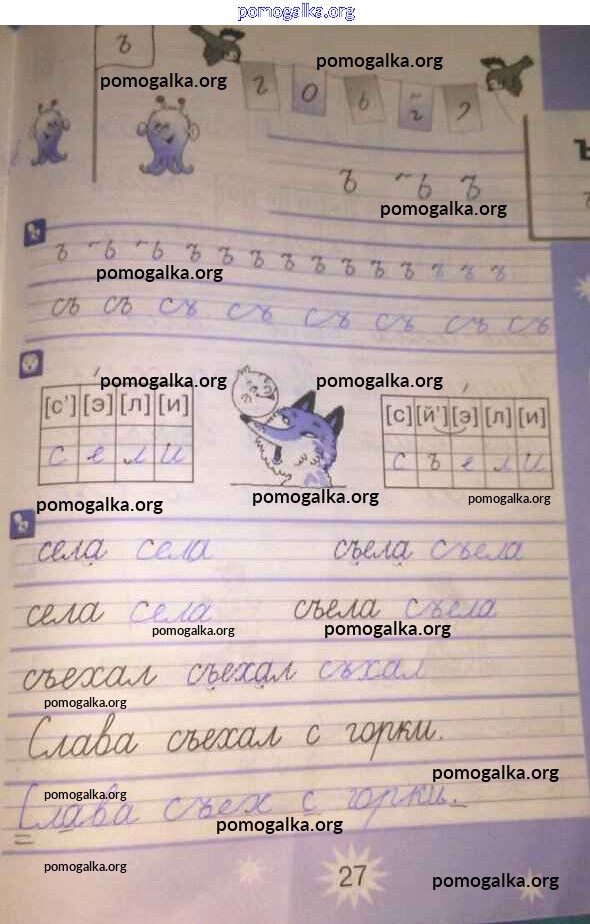 pomogalka.org
ъ
pomogalka.org pomogalka.org
ъ ъ ъ
pomogalka.org
ъ ъ ъ ъ ъ ъ ъ ъ ъ ъ ъ ъ ъ ъ
pomogalka.org
съ съ съ съ съ съ съ съ
pomogalka.org pomogalka.org
[с'] [э] [л] [и] [с] [й'] [э] [л] [и]
с е л и с ъ е л и
pomogalka.org pomogalka.org pomogalka.org
села села съела съела
села села съела съела
pomogalka.org pomogalka.org
съехал съехал съхал
pomogalka.org
Слава съехал с горки.
pomogalka.org
pomogalka.org
Слава съех с горки.
pomogalka.org
pomogalka.org 27 pomogalka.org